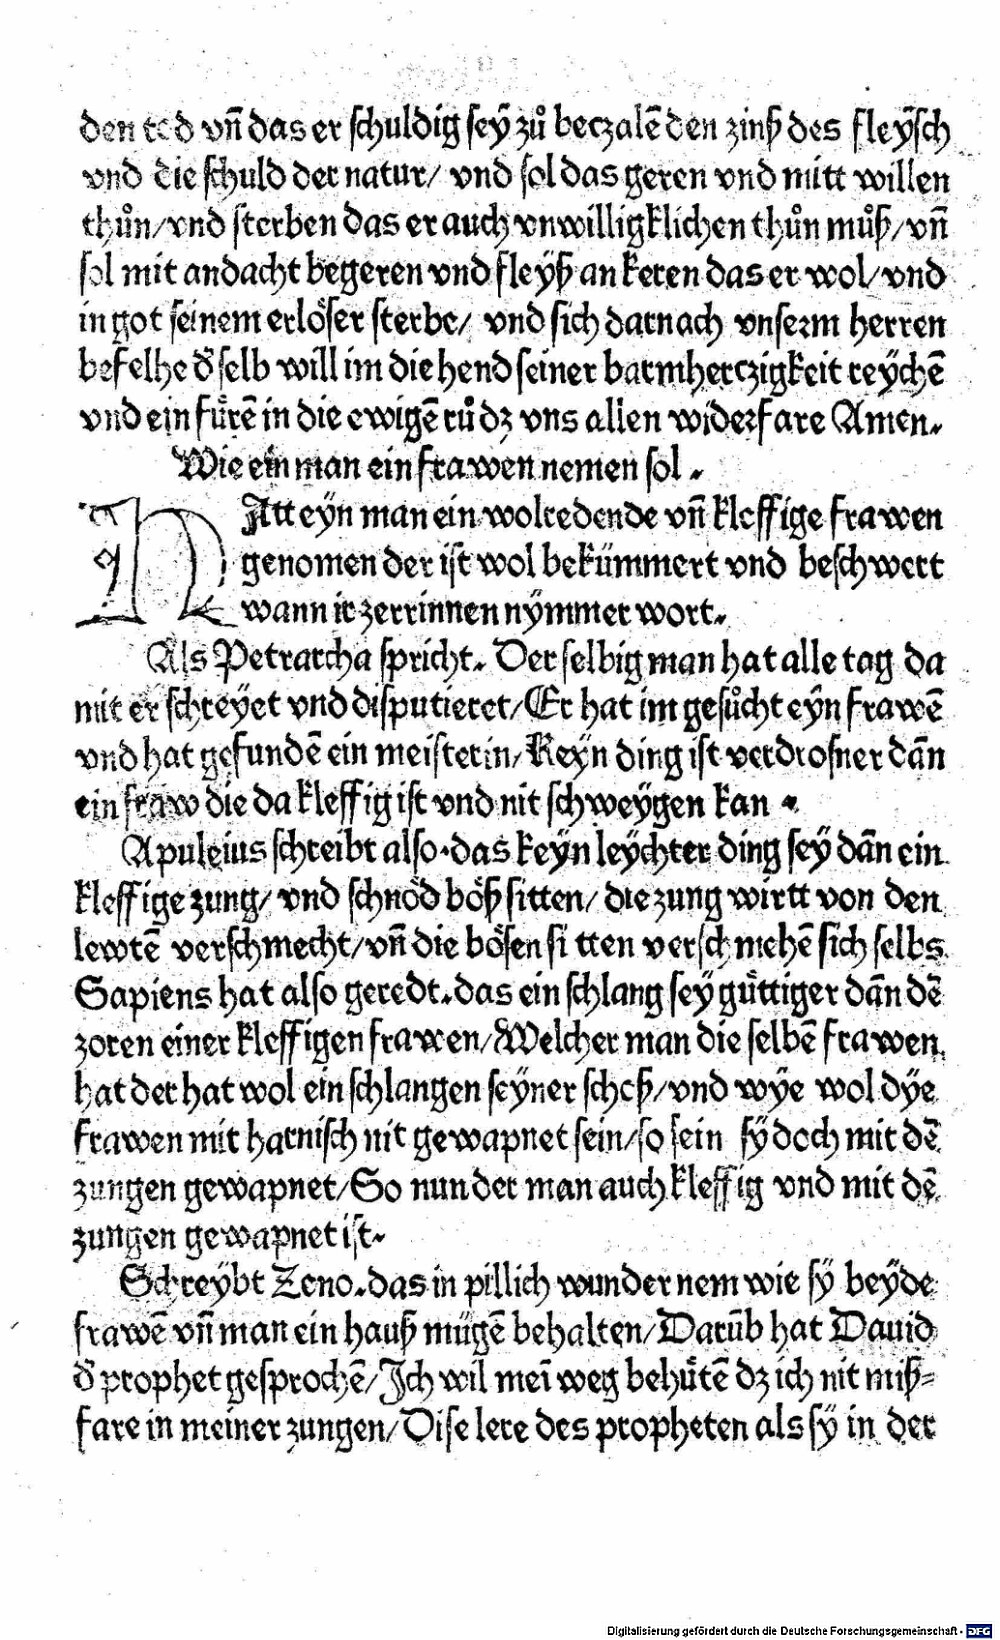 den tod vñ das er schuldig seÿ zů beczalē den zinß des fleÿsch
vnd die schuld der natur/ vnd sol das geren vnd mitt willen
thůn/vnd sterben das er auch vnwilligklichen thůn můß/vñ
sol mit andacht begeren vnd fleÿß an keren das er wol/vnd
in got seinem erlöser sterbe/ vnd sich darnach vnserm herren
befelhe d̕ selb will im die hend seiner barmherczigkeit reÿchē
vnd ein fůrē in die ewigē růdz vns allen widerfare Amen.
Wie ein man ein frawen nemen sol.
HAtt eÿn man ein wolredende vñ kleffige frawen
genomen der ist wol bekümmert vnd beschwert
wann ir zerrinnen nÿmmer wort.
Als Petrarcha spricht. Der selbig man hat alle tag da
mit er schreÿet vnd disputieret/Er hat im gesůcht eÿn frawē
vnd hat gefundē ein meisterin/Keÿn ding ist verdrosner dãn
ein fraw die da kleffig ist vnd nit schweÿgen kan.
Apuleius schreibt also.das keÿn leÿchter ding seÿ dãn ein
kleffige zung/ vnd schnöd böß sitten/ die zung wirtt von den
lewtē verschmecht/vñ die bösen si tten verschmehē sich selbs
Sapiens hat also geredt.das ein schlang seÿ gůttiger dãn dē
zoren einer kleffigen frawen/Welcher man die selbē frawen
hat der hat wol ein schlangen seÿner schoß/vnd wÿe wol dÿe
frawen mit harnisch nit gewapnet sein/so sein sÿ doch mit dē
zungen gewapnet/So nun der man auch kleffig vnd mit dē
zungen gewapnet ist.
Schreÿbt Zeno.das in pillich wunder nem wie sÿ beÿde
frawē vñ man ein hauß mügē behalten/Darūb hat Dauid
d̕ prophet gesprochē/Ich wil meī weg behůtē dz ich nit miß⸗
fare in meiner zungen/Dise lere des propheten als sÿ in der
Digitalisierung gefördert durch die Deutsche Forschungsgemeinschaft - DFG